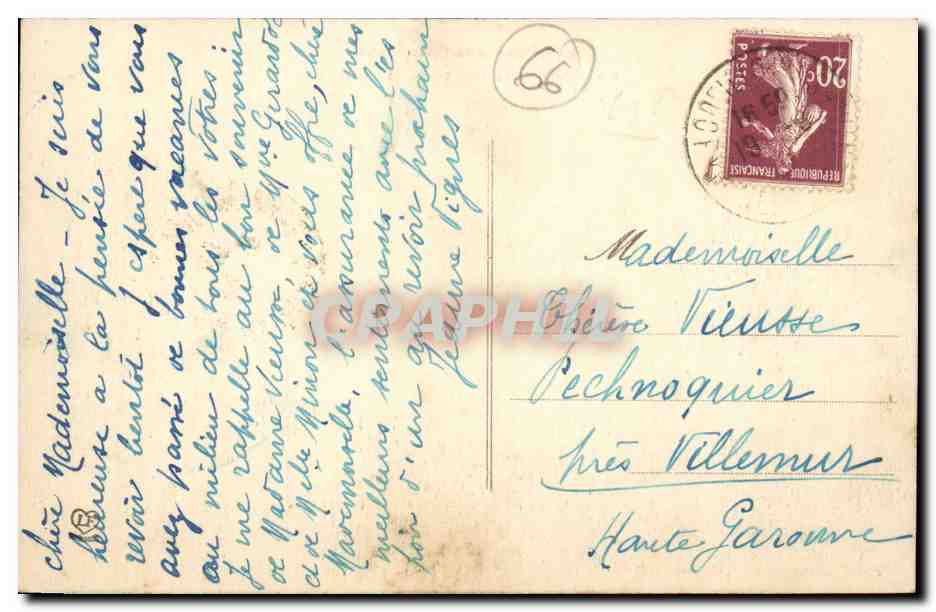 Chère Mademoiselle - Je suis
heureuse à la pensée de vous
revoir bientôt. J'espère que vous
avez passé de bonnes vacances
au milieu de tous les vôtres
Je me rappelle au bon souvenir
de Madame Vieusse de Mme Girardot
et de Melle Simone et vous offre, chère
Mademoiselle, l'assurance de mes
meilleurs sentiments avec l'es
poir d'un au revoir prochain
Jeanne Vignes
66
20c
POSTES
REPUBLIQUE FRANÇAISE
16 50
CPAPHIL
Mademoiselle
Thérèse Vieusse
Pechnoquier
près Villemur
Haute Garonne